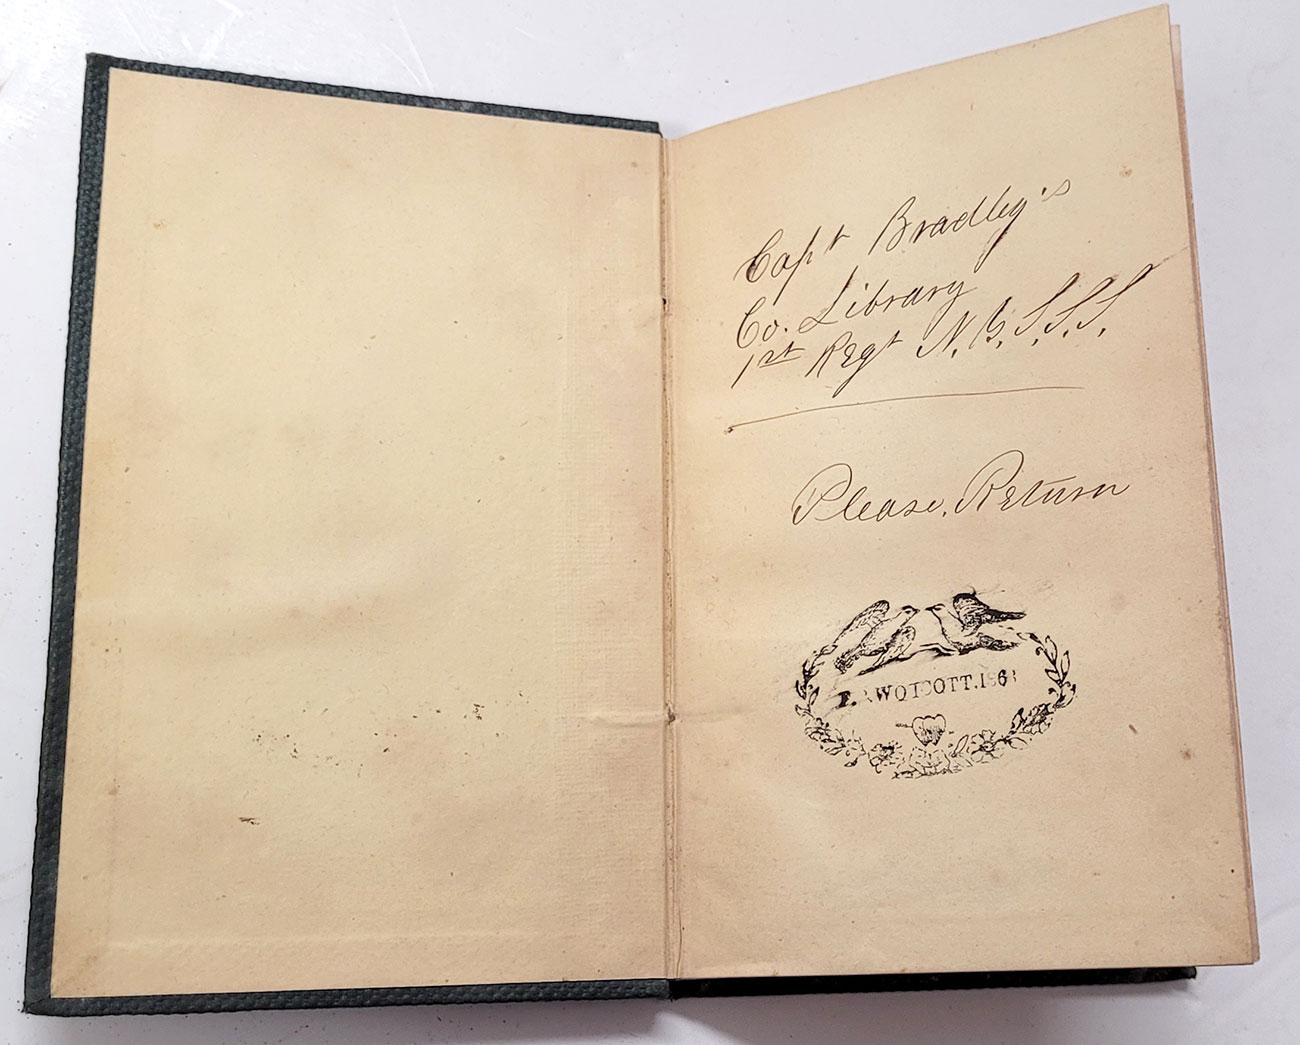 Capt Bradley's
Co. Library
1st Regt N.B.S.S.S.
Please Return
WOTCOTT. 1863